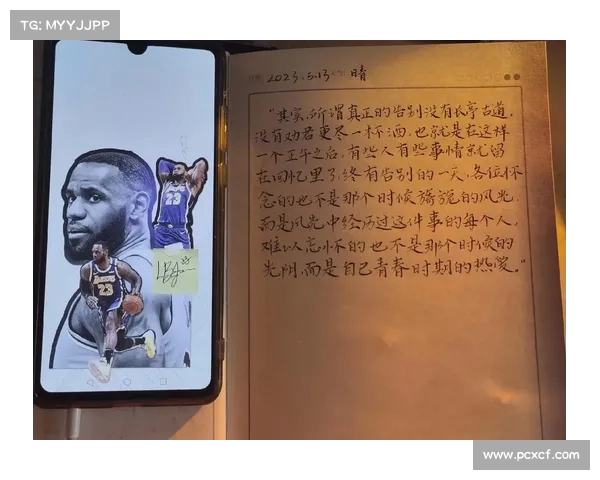 TG: MYYJJPP
日期 2023.5.13 天气 晴
“其实,所谓真正的告别没有长亭古道,
没有劝君更尽一杯酒,也就是在这样
一个正午之后,有些人有些事情就留
在回忆里了,终有告别的一天,各位怀
念的也不是那个时候旖旎的风光,
而是风光中经历过这件事的每个人,
难以忘怀的也不是那个时候的
光阴,而是自己青春时期的热爱。”
23
LAKERS
23
LBJ
www.pcxcf.com